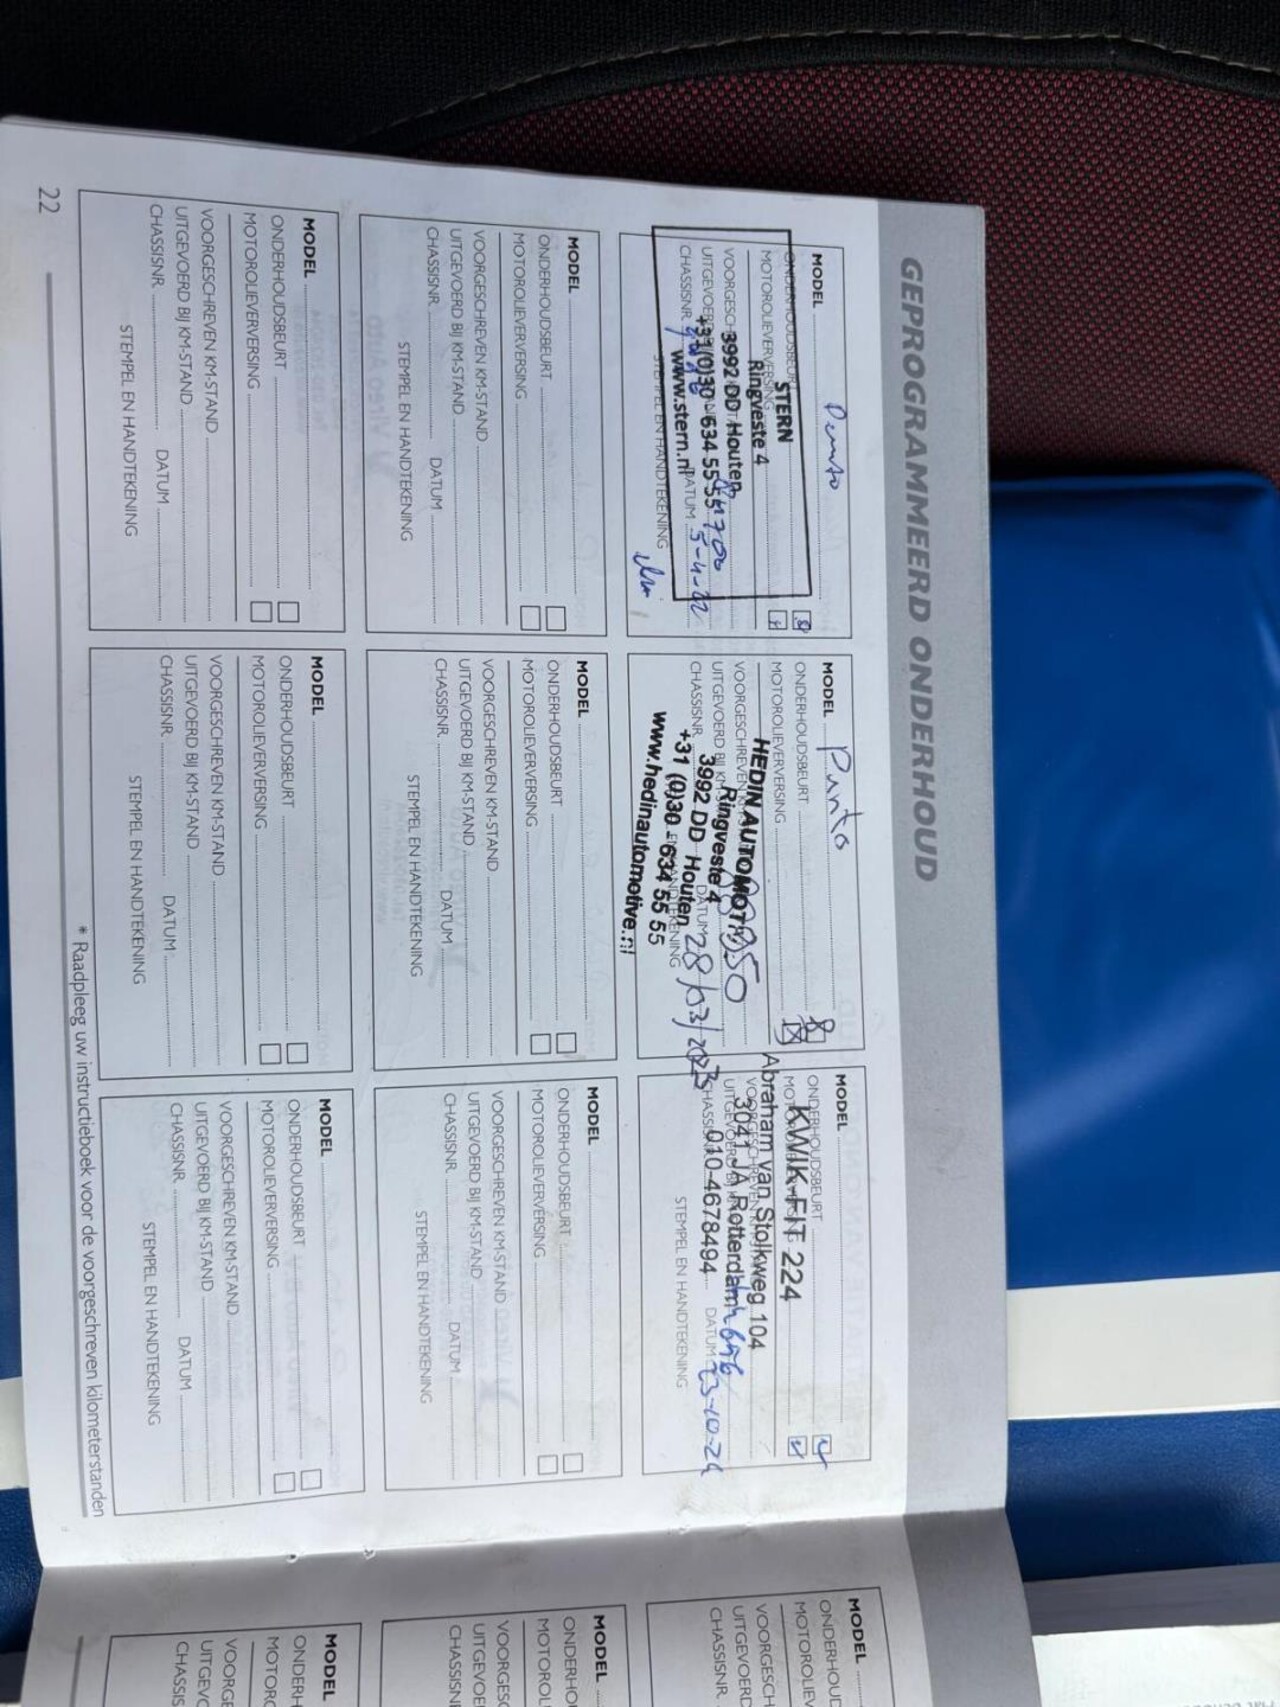 GEPROGRAMMEERD ONDERHOUD
MODEL Punto
ONDERHOUDSBEURT
MOTOROLIEVERVERSING
VOORGESCHREVEN KM-STAND
UITGEVOERD BIJ KM-STAND
CHASSISNR. DATUM 5-4-22
STEMPEL EN HANDTEKENING
STERN
Ringveste 4
3992 DD Houten
+31(0)30 634 55 55
www.stern.nl
MODEL Punto
ONDERHOUDSBEURT
MOTOROLIEVERVERSING
VOORGESCHREVEN
UITGEVOERD BIJ KM-STAND
CHASSISNR. DATUM 28/03/2023
HANDTEKENING
HEDIN AUTOMOTIVE
Ringveste 4
3992 DD Houten
+31 (0)30 - 634 55 55
www.hedinautomotive.nl
MODEL
ONDERHOUDSBEURT
MOTOROLIEVERVERSING
VOORGESCHREVEN KM-STAND
UITGEVOERD BIJ KM-STAND
CHASSISNR. DATUM 23-10-24
STEMPEL EN HANDTEKENING
KWIK-FIT 224
Abraham van Stolkweg 104
3041 JA Rotterdam
010-4678494
MODEL
ONDERHOUDSBEURT
MOTOROLIEVERVERSING
VOORGESCHREVEN KM-STAND
UITGEVOERD BIJ KM-STAND
CHASSISNR. DATUM
STEMPEL EN HANDTEKENING
MODEL
ONDERHOUDSBEURT
MOTOROLIEVERVERSING
VOORGESCHREVEN KM-STAND
UITGEVOERD BIJ KM-STAND
CHASSISNR. DATUM
STEMPEL EN HANDTEKENING
MODEL
ONDERHOUDSBEURT
MOTOROLIEVERVERSING
VOORGESCHREVEN KM-STAND
UITGEVOERD BIJ KM-STAND
CHASSISNR. DATUM
STEMPEL EN HANDTEKENING
MODEL
ONDERHOUDSBEURT
MOTOROLIEVERVERSING
VOORGESCHREVEN KM-STAND
UITGEVOERD BIJ KM-STAND
CHASSISNR. DATUM
STEMPEL EN HANDTEKENING
MODEL
ONDERHOUDSBEURT
MOTOROLIEVERVERSING
VOORGESCHREVEN KM-STAND
UITGEVOERD BIJ KM-STAND
CHASSISNR. DATUM
STEMPEL EN HANDTEKENING
MODEL
ONDERHOUDSBEURT
MOTOROLIEVERVERSING
VOORGESCHREVEN KM-STAND
UITGEVOERD BIJ KM-STAND
CHASSISNR. DATUM
STEMPEL EN HANDTEKENING
* Raadpleeg uw instructieboek voor de voorgeschreven kilometerstanden
22
MODEL
ONDERHOUD
MOTOROLIEV
VOORGESCH
UITGEVOERD
CHASSISNR.
MODEL
ONDERHOU
MOTOROLI
VOORGESC
UITGEVOE
CHASSISN
MODEL
ONDERH
MOTORO
VOORGE
UITGEVO
CHASSIS